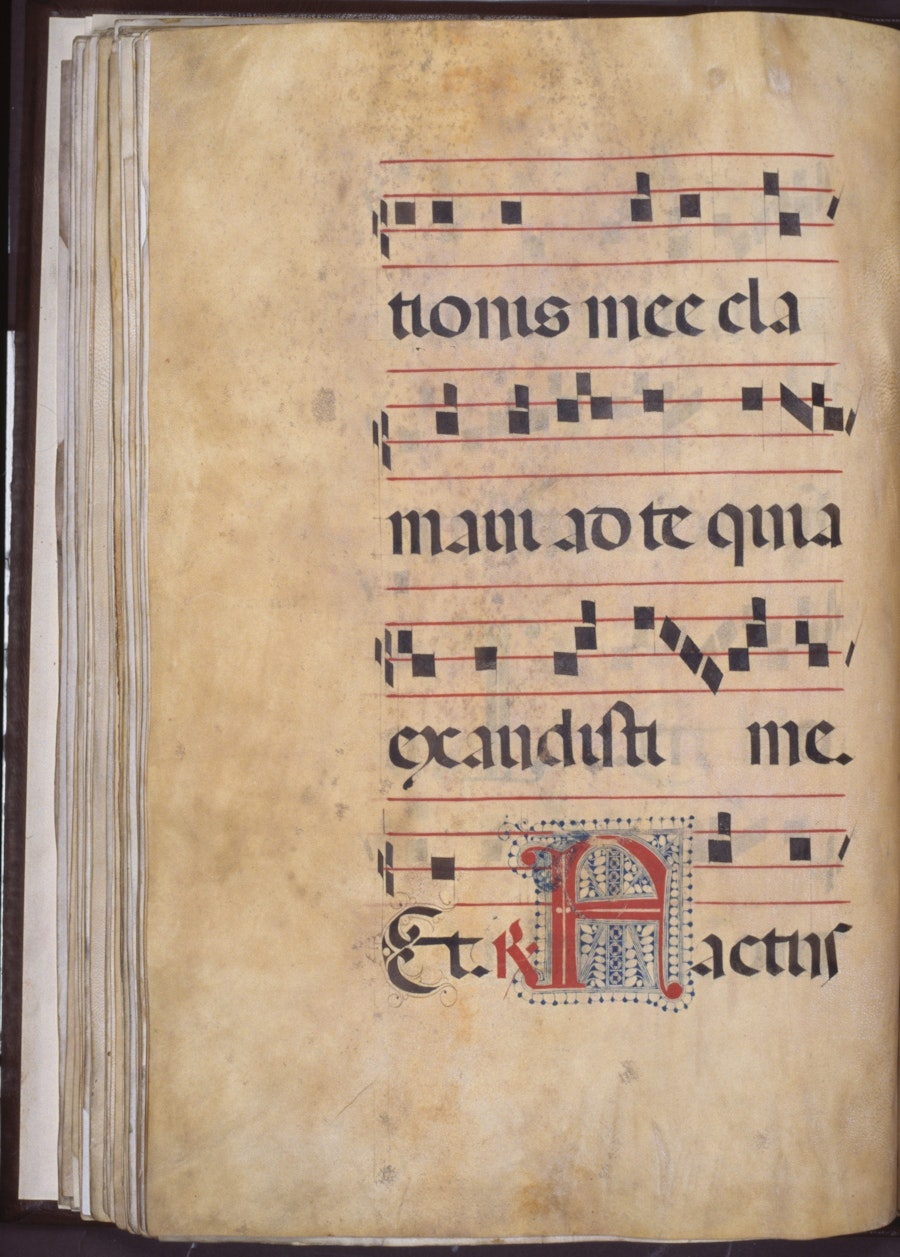 tionis mee cla
maui ad te quia
exaudisti me.
Et. R. Factus